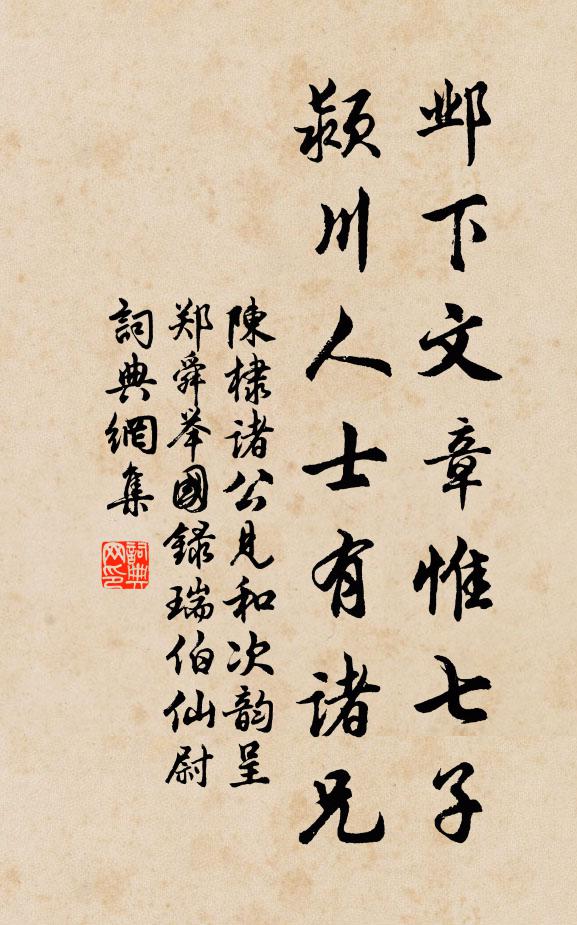 邺下文章惟七子
颍川人士有诸兄
陳棣诸公见和次韵呈
郑舜举國録瑞伯仙尉
詞典網集
詞典网印